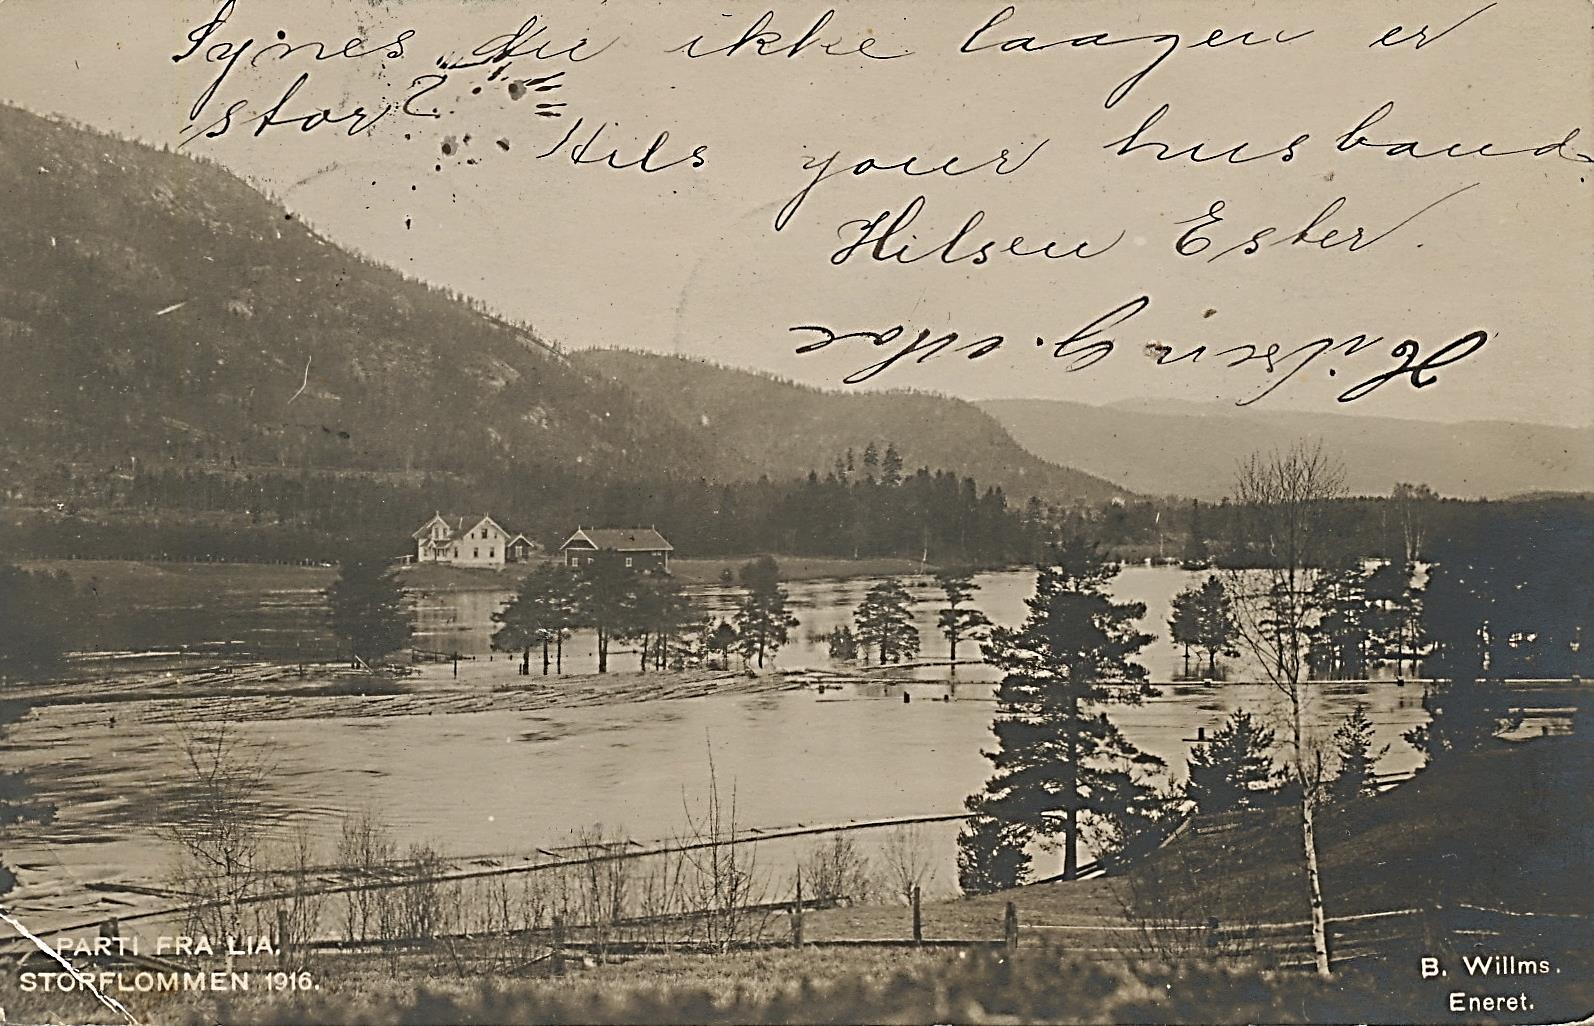 Synes du ikke laagen er
stor?
Hils your husband.
Hilsen Ester.
Hilsen
PARTI FRA LIA.
STORFLOMMEN 1916.
B. Willms.
Eneret.